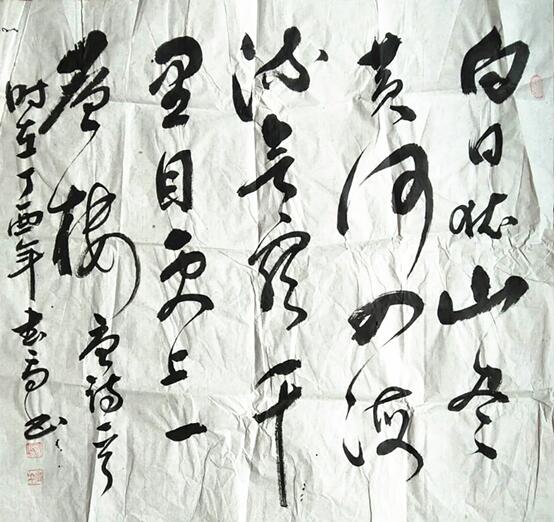 白日依山尽
黄河入海
流欲穷千
里目更上一
层楼 唐诗一首
时在丁酉年 书